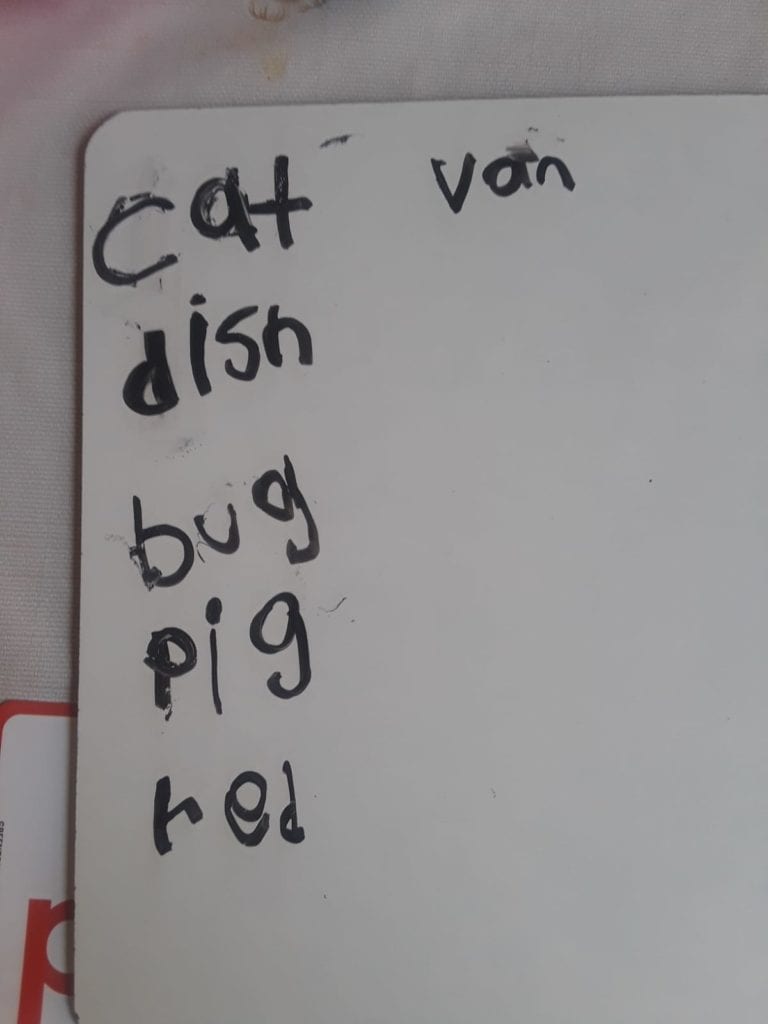 cat van
dish
bug
pig
red
p